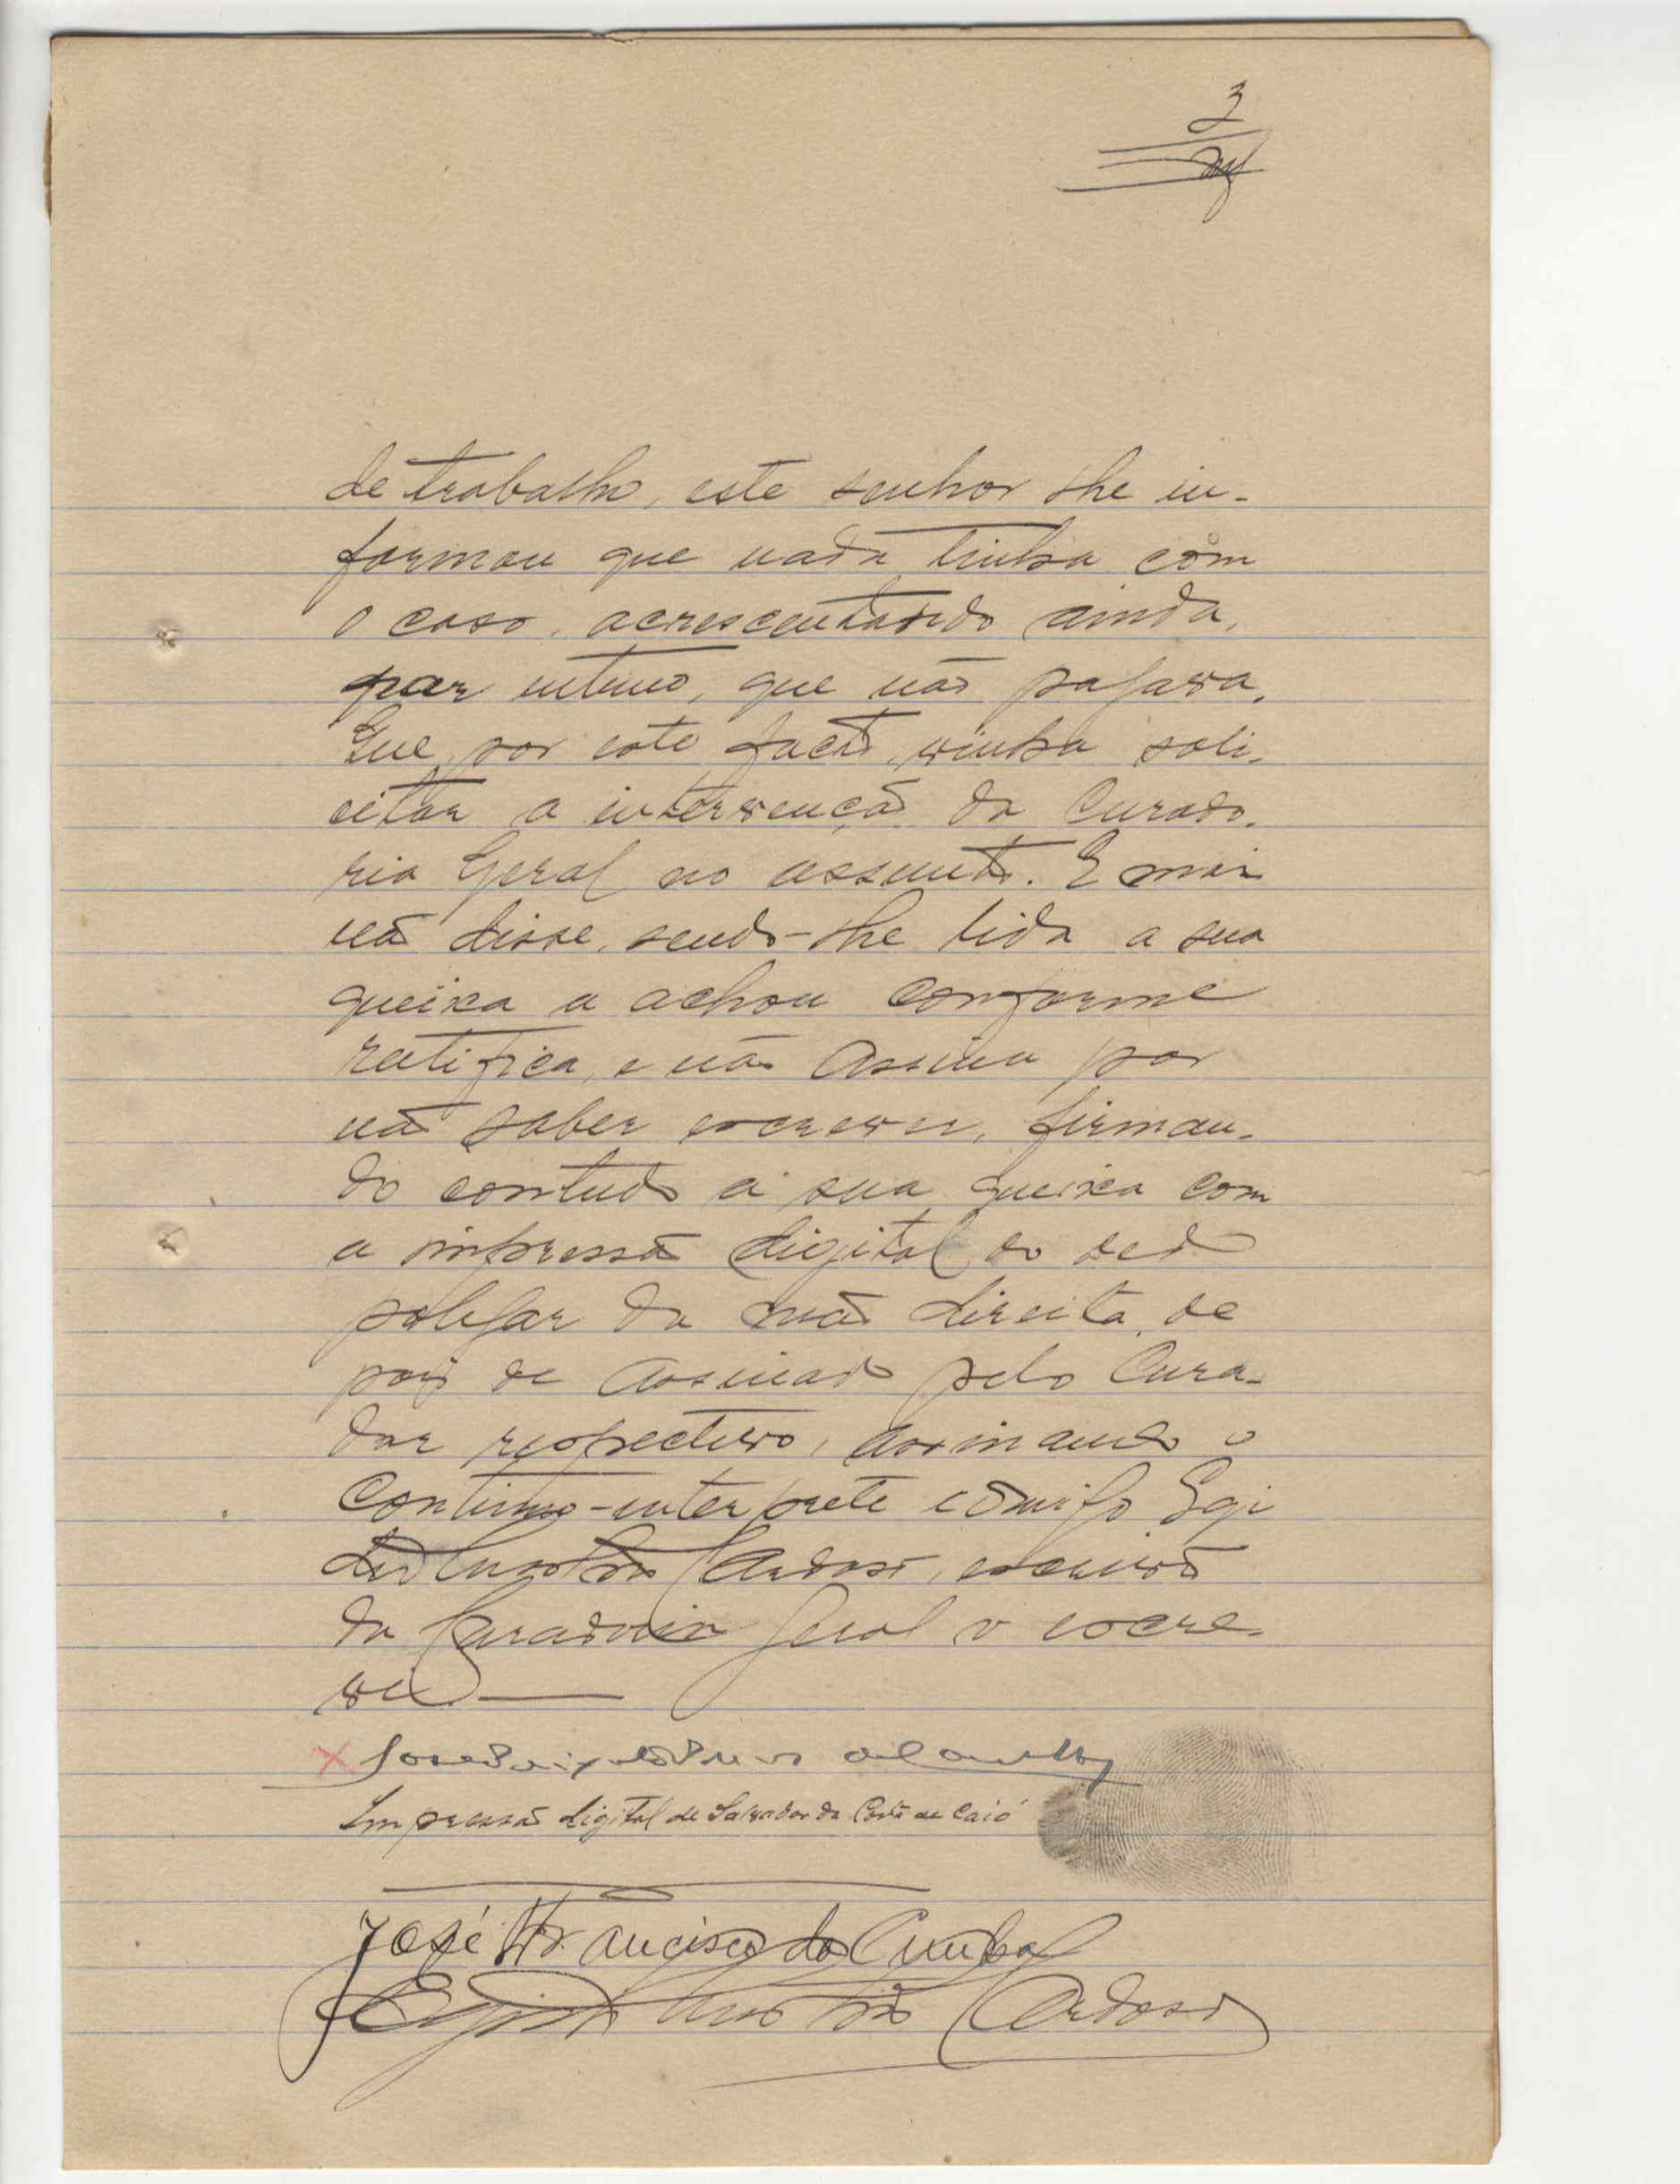 3
de trabalho, este senhor lhe in-
formou que nada tinha com
o caso, acrescentando ainda,
por ultimo, que não pagava.
Que, por este facto, vinha soli-
citar a intervenção da Curado-
ria Geral no assunto. E mais
não disse, sendo-lhe lida a sua
queixa a achou conforme
ratifica, e não assina por
não saber escrever, firman-
do contudo a sua queixa com
a impressão digital do dedo
polegar da mão direita, de
pois de assinado pelo Cura-
dor respectivo, assinando o
Continuo-interprete comigo Egi
Cardoso, escrivão
da Curadoria Geral o escre-
vi.
X José
Impressão digital de Salvador da Costa de Caió
José Francisco da Cunha
Cardoso